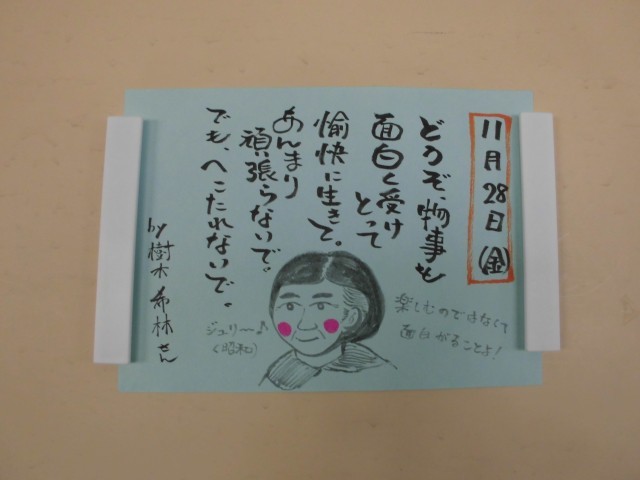 11月28日(金)
どうぞ、物事を
面白く受け
とって
愉快に生きて。
あんまり
頑張らないで。
でも、へこたれないで。
by 樹木希林さん
楽しむのではなくて
面白がることよ!
ジュリ～♪
(昭和)